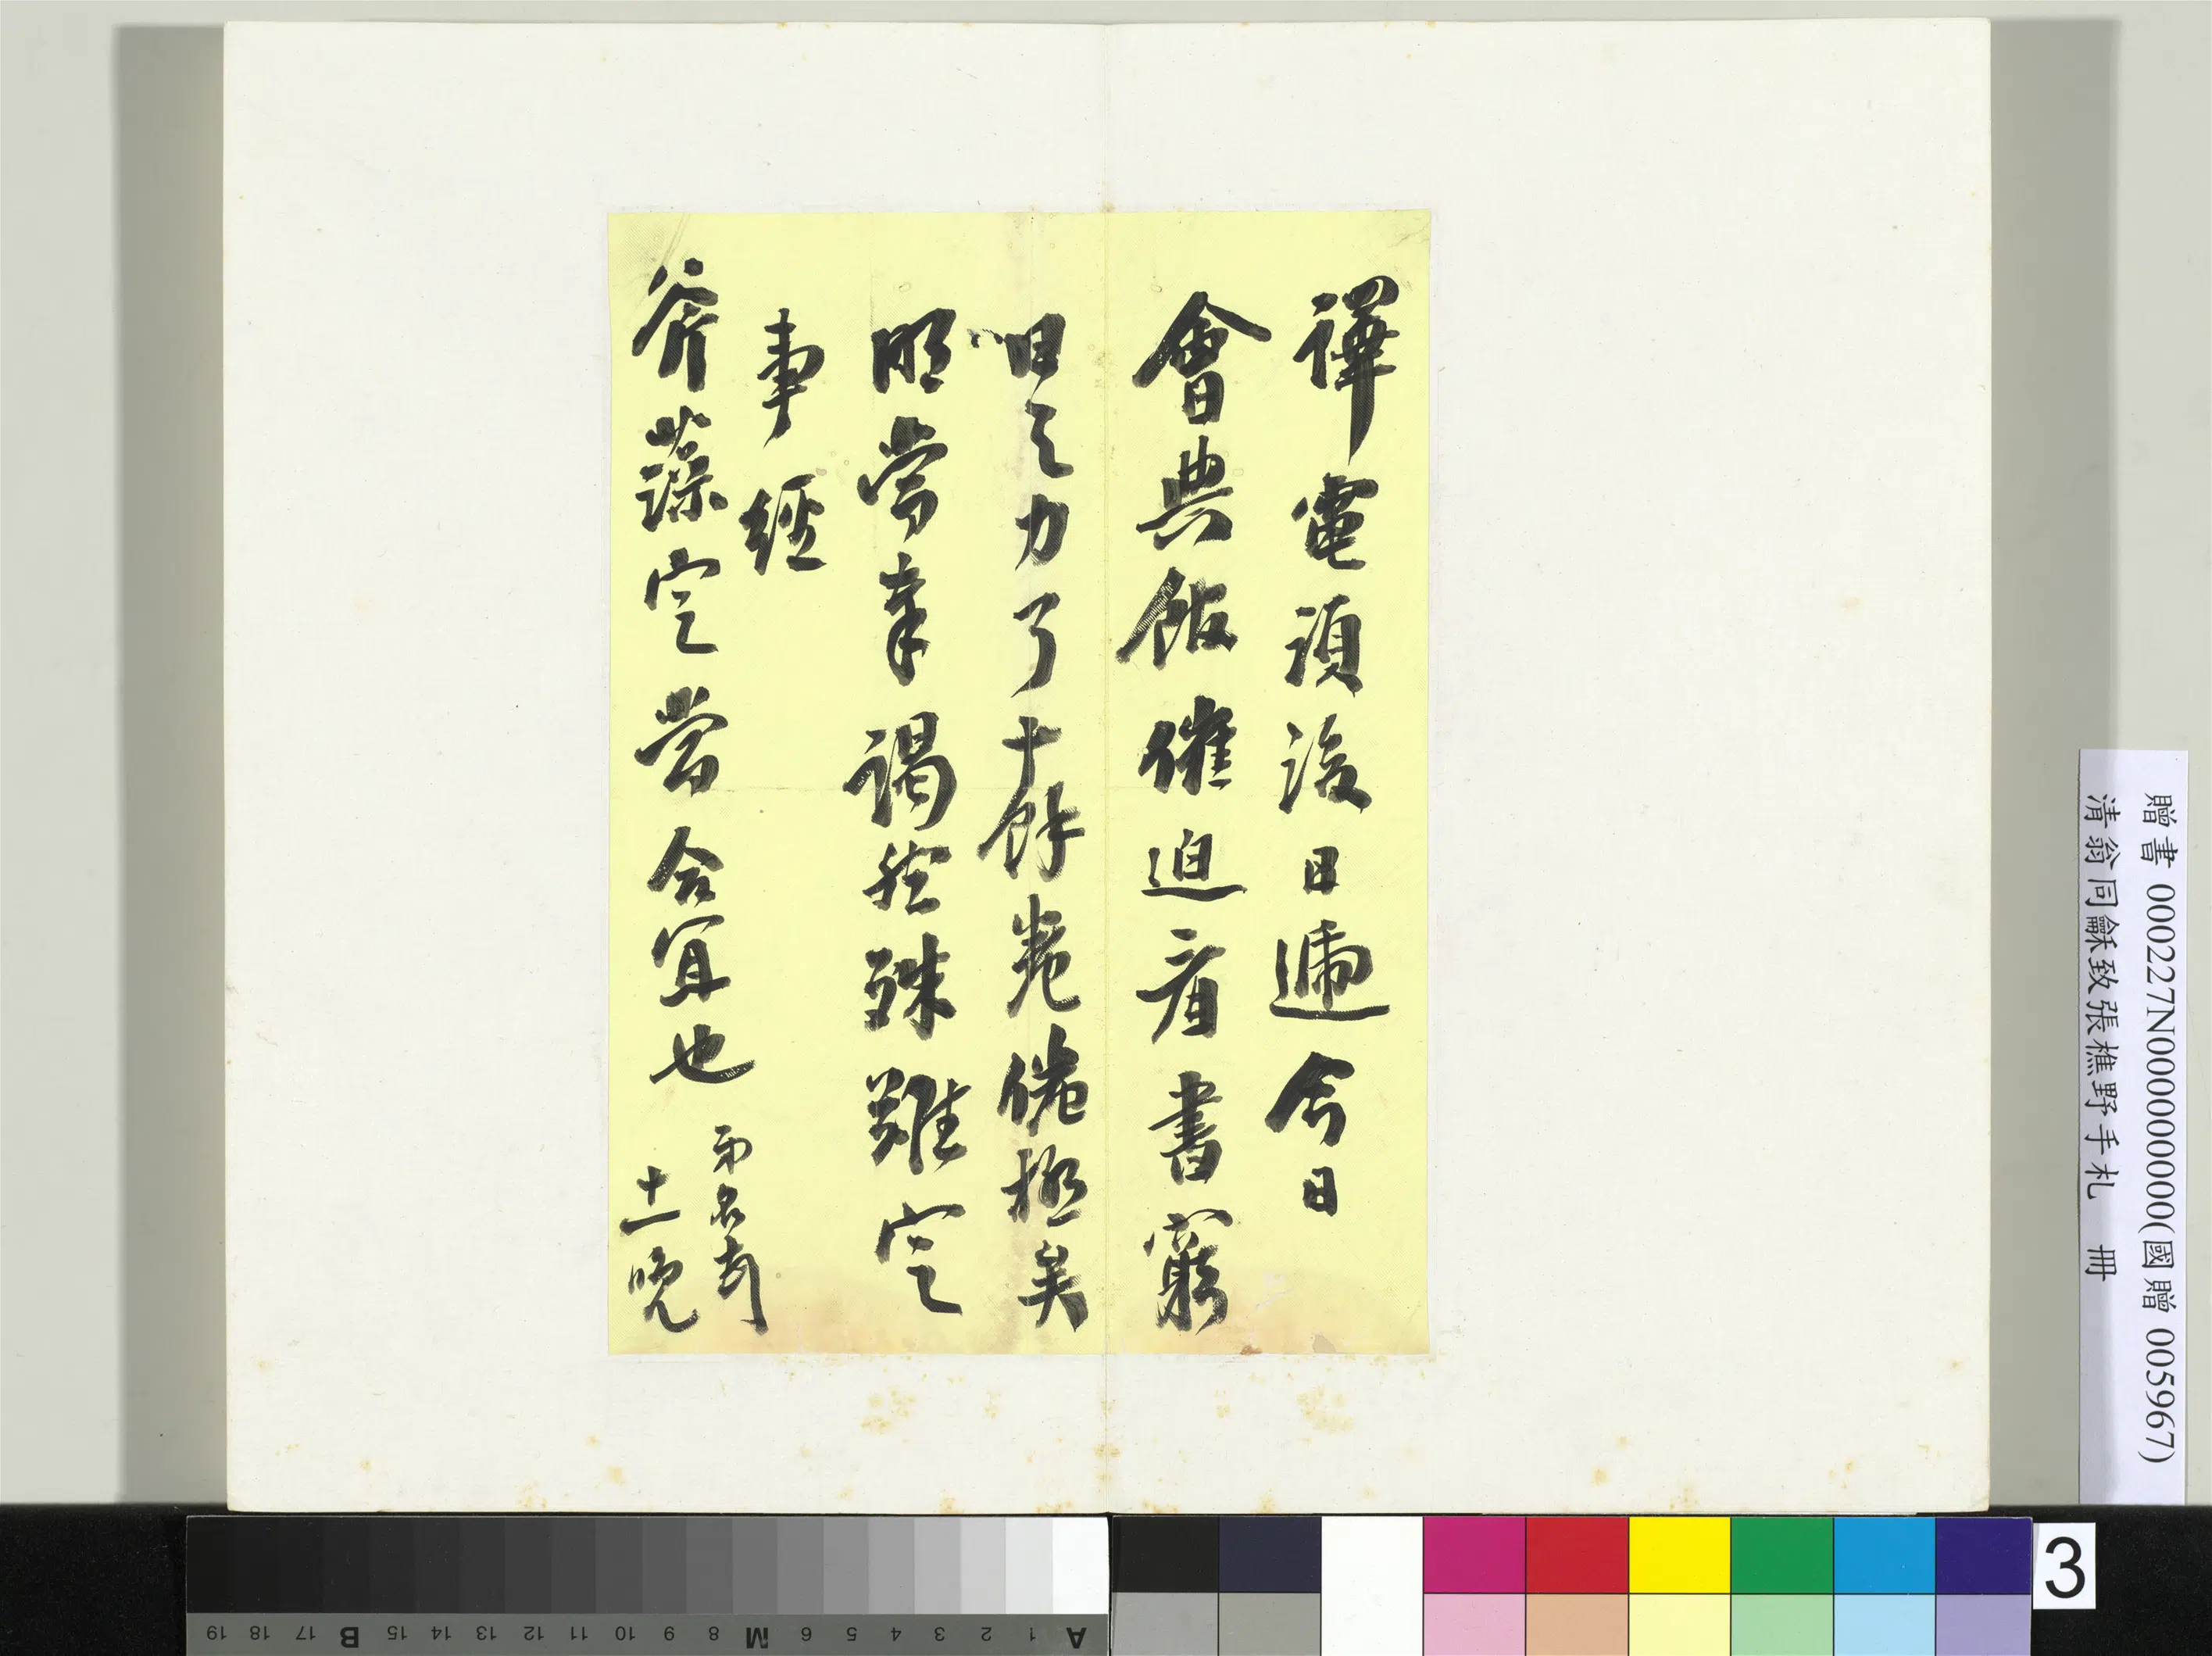 譯電須後日遞今日
會典館催迫看書窮
日之力了十餘卷倦極矣
明當奉謁然殊難定
事經
斧藻定當合宜也 兩名
十一晚
贈書 000227N000000000(國贈 005967)
清翁同龢致張樵野手札 冊
3
A 1 2 3 4 5 6 M 8 9 10 11 12 13 14 15 B 17 18 19